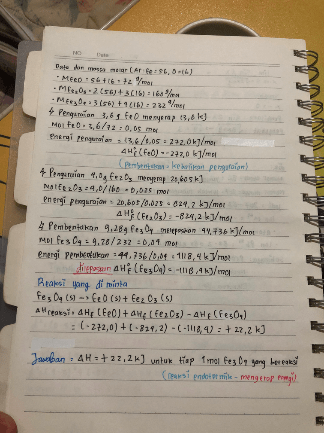 NO. Date:
Data dan massa molar (Ar Fe = 56, O = 16)
• MFeO = 56 + 16 = 72 g/mol
• MFe2O3 = 2 (56) + 3 (16) = 160 g/mol
• MFe3O4 = 3 (56) + 4 (16) = 232 g/mol
↳ Penguraian 3,6 g FeO menyerap 13,6 kJ
Mol FeO = 3,6 / 72 = 0,05 mol
energi penguraian = 13,6 / 0,05 = 272,0 kJ/mol
ΔH°f (FeO) = -272,0 kJ/mol
(Pembentukan = kebalikan penguraian)
↳ Penguraian 4,0 g Fe2O3 menyerap 20,605 kJ
Mol Fe2O3 = 4,0 / 160 = 0,025 mol
energi penguraian = 20,605 / 0,025 = 824,2 kJ/mol
ΔH°f (Fe2O3) = -824,2 kJ/mol
↳ Pembentukan 9,28 g Fe3O4 melepaskan 44,736 kJ
Mol Fe3O4 = 9,28 / 232 = 0,04 mol
energi pembentukan = 44,736 / 0,04 = 1118,4 kJ/mol
dilepaskan ΔH°f (Fe3O4) = -1118,4 kJ/mol
Reaksi yang diminta
Fe3O4 (s) → FeO (s) + Fe2O3 (s)
ΔH reaksi = ΔHf (FeO) + ΔHf (Fe2O3) - ΔHf (Fe3O4)
= (-272,0) + (-824,2) - (-1118,4) = + 22,2 kJ
Jawaban = ΔH = + 22,2 kJ untuk tiap 1 mol Fe3O4 yang bereaksi
(reaksi endotermik - menyerap energi)